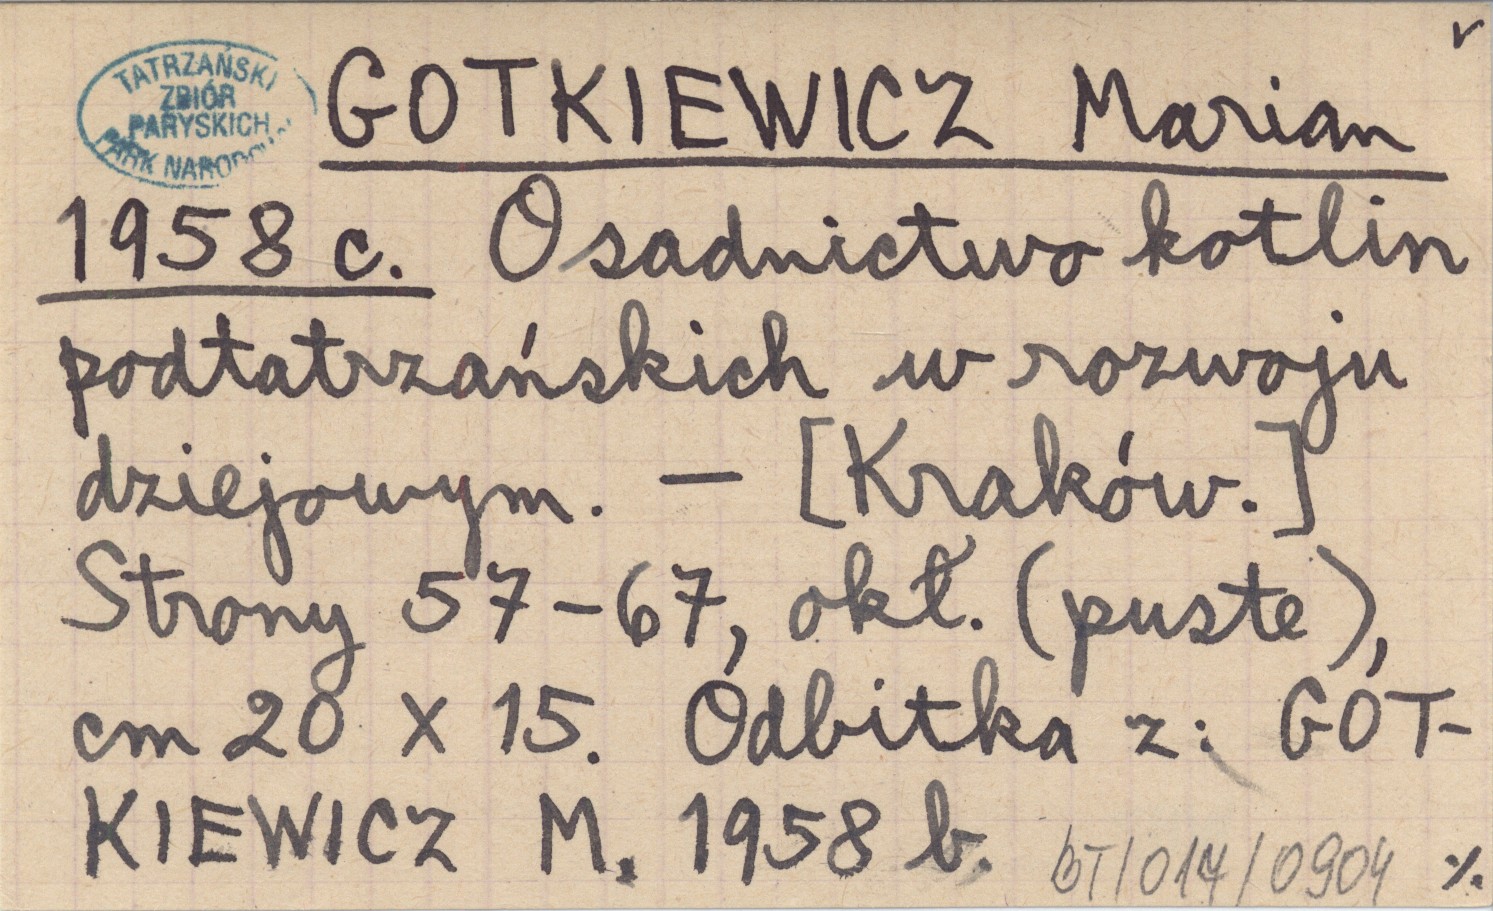 TATRZAŃSKI
ZBIÓR
PARYSKICH
PARK NARODOWY
GOTKIEWICZ Marian
1958 c. Osadnictwo kotlin
podtatrzańskich w rozwoju
dziejowym. — [Kraków.]
Strony 57-67, okł. (puste),
cm 20 x 15. Odbitka z: GOT-
KIEWICZ M. 1958 b.
BT/017/0904 ./.